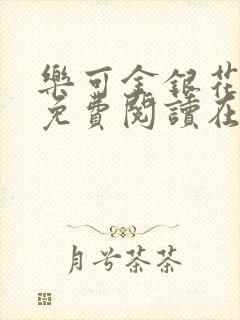 樂可金銀花
免費閱讀在
月兮茶茶